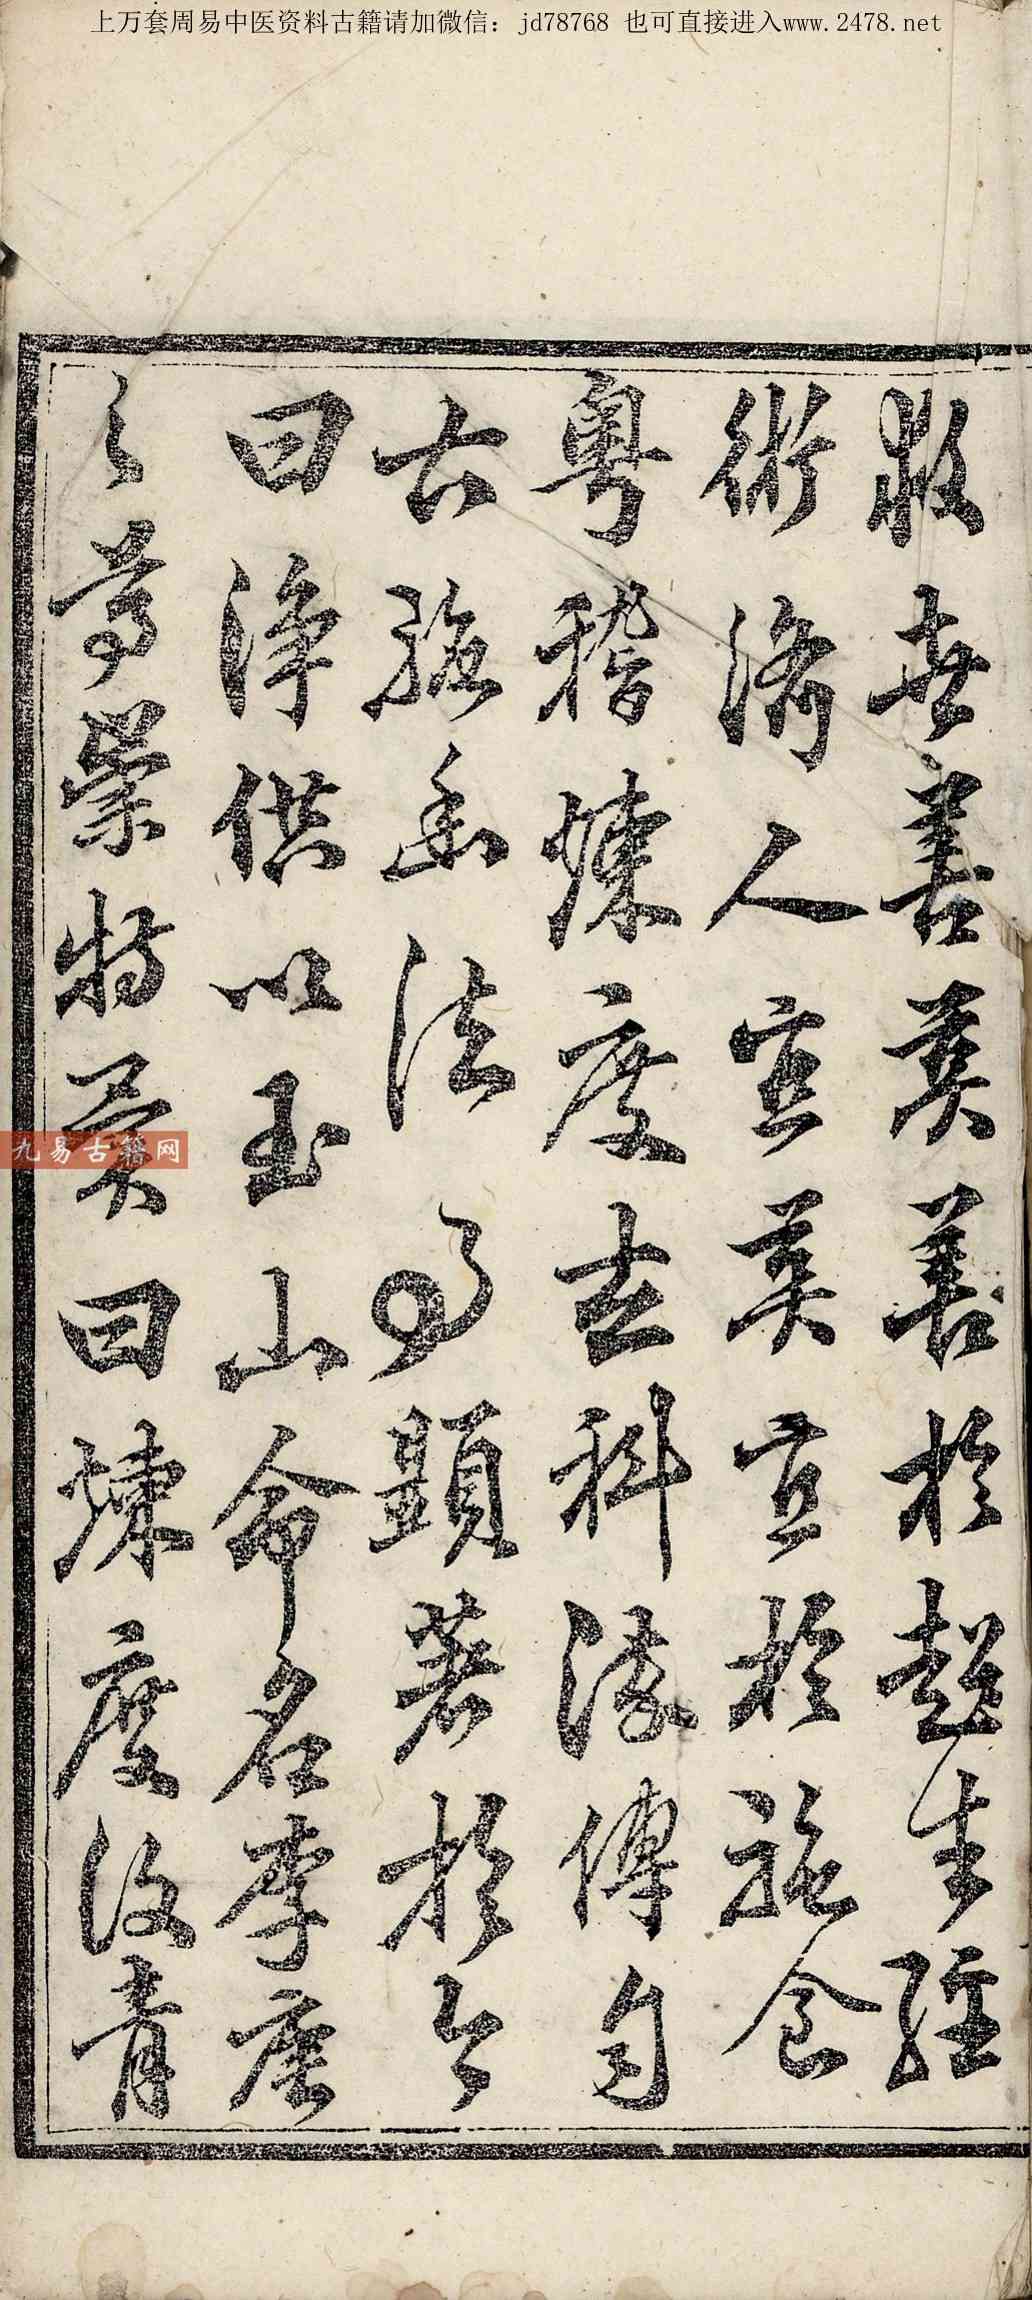 上万套周易中医资料古籍请加微信：jd78768 也可直接进入www.2478.net
救世善莫善於超生經
術濟人宜莫宜於施食
粵稽煉度古科法傳自
古施幽法事顯著於今
曰淨供以玉山命名李唐
之尊崇特異曰煉度以青
九易古籍网